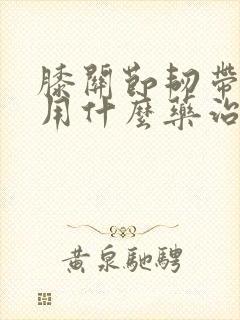 膝關節韌帶
用什麼藥治
黃泉馳騁